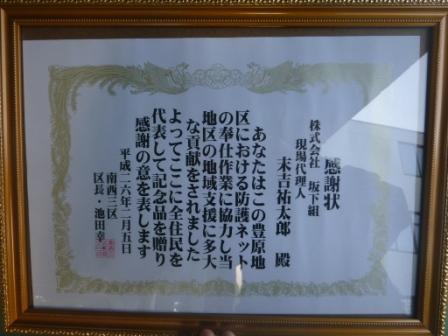 感謝状
株式会社 坂下組
現場代理人
末吉祐太郎 殿
あなたはこの豊原地
区における防護ネット
の奉仕作業に協力し当
地区の地域支援に多大
な貢献をされました
よってここに全住民を
代表して記念品を贈り
感謝の意を表します
平成二六年二月五日
南西三区
区長・池田幸一